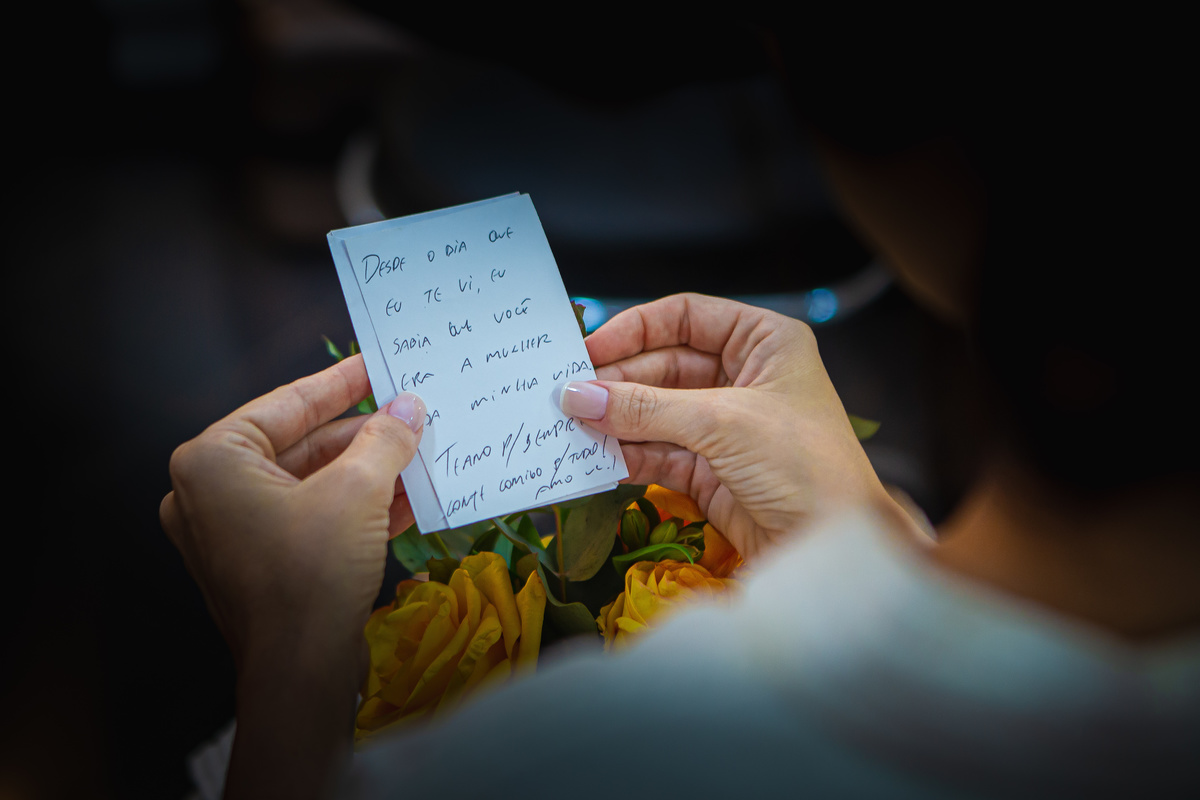 DESDE O DIA QUE
EU TE VI, EU
SABIA QUE VOCÊ
ERA A MULHER
DA MINHA VIDA.
TE AMO P/ SEMPRE
CONTE COMIGO P/ TUDO!
AMO VC.!